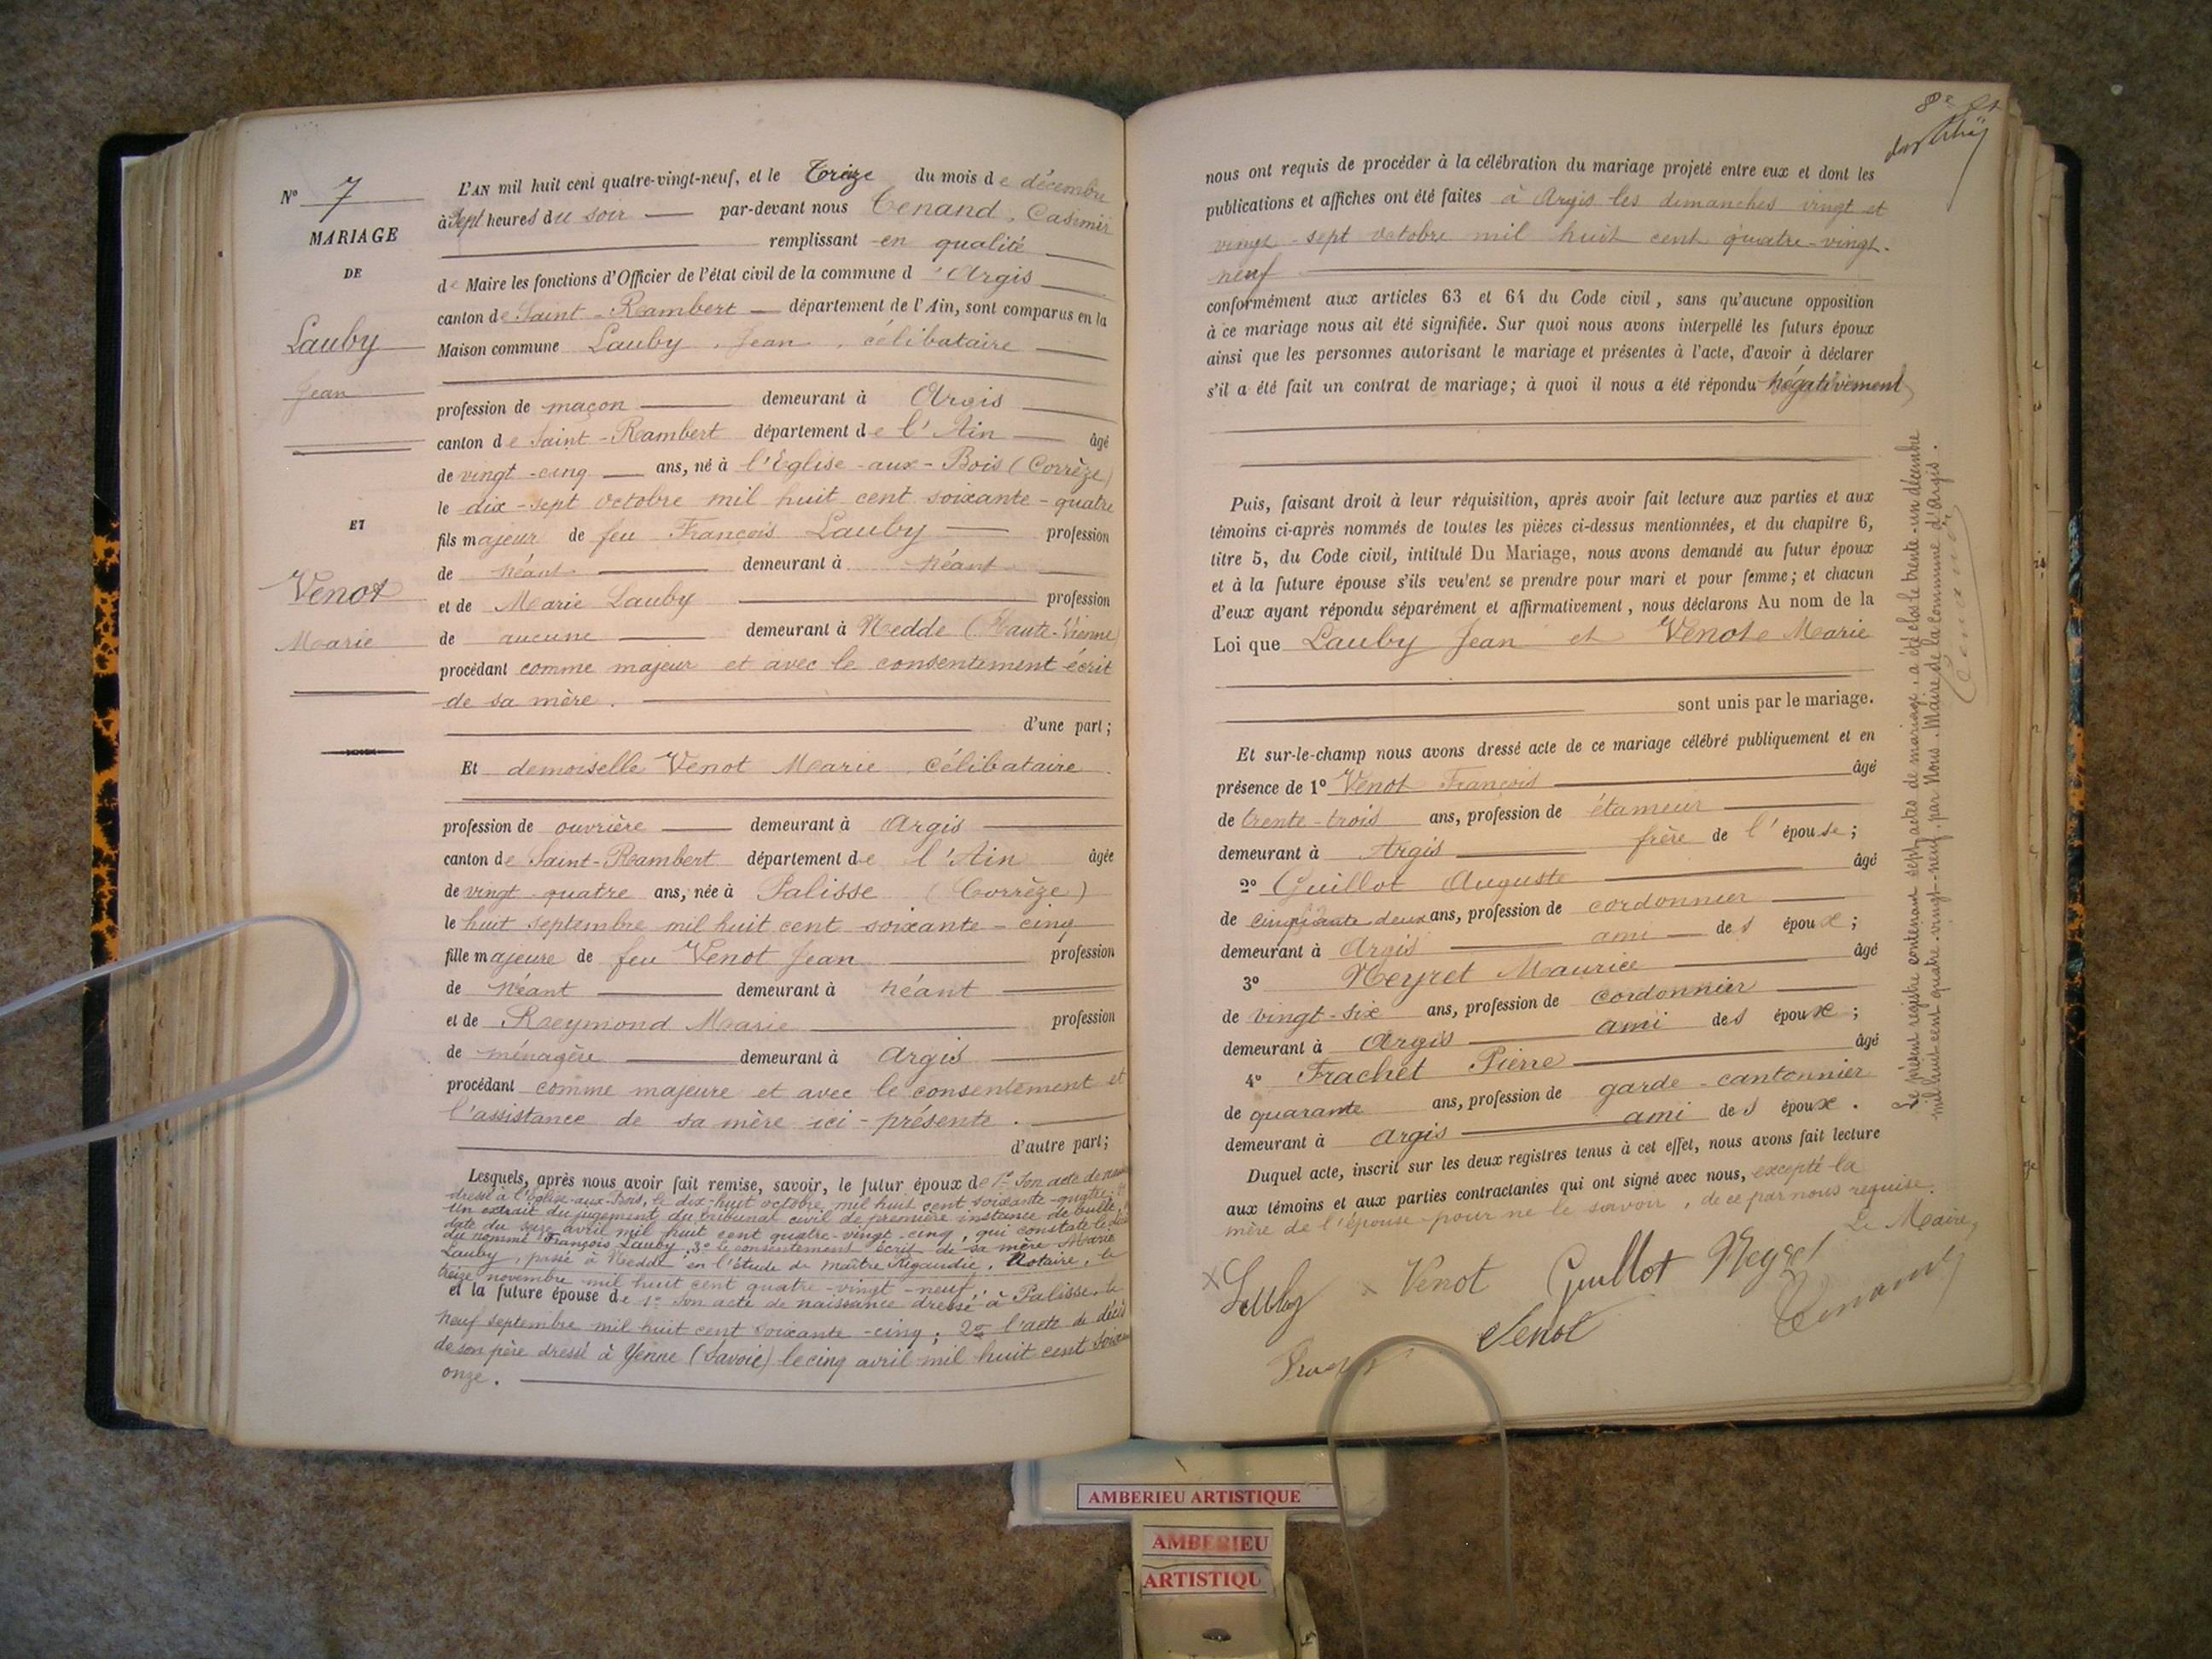 N° 7
MARIAGE
DE
Lauby
Jean
ET
Venot
Marie
L'AN mil huit cent quatre-vingt-neuf, et le Treize du mois de décembre
à Sept heures du soir par-devant nous Tenand, Casimir
remplissant en qualité
de Maire les fonctions d'Officier de l'état civil de la commune d'Argis
canton de Saint-Rambert département de l'Ain, sont comparus en la
Maison commune Lauby, Jean, célibataire
profession de maçon demeurant à Argis
canton de Saint-Rambert département de l'Ain âgé
de vingt-cinq ans, né à l'Eglise-aux-Bois (Corrèze)
le dix-sept octobre mil huit cent soixante-quatre
fils majeur de feu François Lauby profession
de néant demeurant à néant
et de Marie Lauby profession
de aucune demeurant à Nedde (Haute-Vienne)
procédant comme majeur et avec le consentement écrit
de sa mère.
d'une part;
Et demoiselle Venot Marie, célibataire.
profession de ouvrière demeurant à Argis
canton de Saint-Rambert département de l'Ain âgée
de vingt-quatre ans, née à Palisse (Corrèze)
le huit septembre mil huit cent soixante-cinq
fille majeure de feu Venot Jean profession
de néant demeurant à néant
et de Reymond Marie profession
de ménagère demeurant à Argis
procédant comme majeure et avec le consentement et
l'assistance de sa mère ici-présente.
d'autre part;
Lesquels, après nous avoir fait remise, savoir, le futur époux de 1° Son acte de
dressé à l'Eglise-aux-Bois, le dix-huit octobre mil huit cent soixante-quatre;
Un extrait du jugement du tribunal civil de première instance de
date du seize avril mil huit cent quatre-vingt-cinq, qui constate le
du nommé François Lauby. 3° le consentement écrit de sa mère Marie
Lauby, passé à Nedde en l'étude de Maître Rigaudie, Notaire, le
treize novembre mil huit cent quatre-vingt-neuf.
et la future épouse de 1° Son acte de naissance dressé à Palisse, le
neuf septembre mil huit cent soixante-cinq; 2° l'acte de décès
de son père dressé à Yenne (Savoie) le cinq avril mil huit cent
onze.
nous ont requis de procéder à la célébration du mariage projeté entre eux et dont les
publications et affiches ont été faites à Argis les dimanches vingt et
vingt-sept octobre mil huit cent quatre-vingt-
neuf
conformément aux articles 63 et 64 du Code civil, sans qu'aucune opposition
à ce mariage nous ait été signifiée. Sur quoi nous avons interpellé les futurs époux
ainsi que les personnes autorisant le mariage et présentes à l'acte, d'avoir à déclarer
s'il a été fait un contrat de mariage; à quoi il nous a été répondu négativement
Puis, faisant droit à leur réquisition, après avoir fait lecture aux parties et aux
témoins ci-après nommés de toutes les pièces ci-dessus mentionnées, et du chapitre 6,
titre 5, du Code civil, intitulé Du Mariage, nous avons demandé au futur époux
et à la future épouse s'ils veulent se prendre pour mari et pour femme; et chacun
d'eux ayant répondu séparément et affirmativement, nous déclarons Au nom de la
Loi que Lauby Jean et Venot Marie
sont unis par le mariage.
Et sur-le-champ nous avons dressé acte de ce mariage célébré publiquement et en
présence de 1° Venot François âgé
de trente-trois ans, profession de étameur
demeurant à Argis frère de l'épouse;
2° Guillot Auguste âgé
de cinquante deux ans, profession de cordonnier
demeurant à Argis ami des époux;
3° Neyret Maurice âgé
de vingt-six ans, profession de cordonnier
demeurant à Argis ami des époux;
4° Frachet Pierre âgé
de quarante ans, profession de garde-cantonnier
demeurant à Argis ami des époux.
Duquel acte, inscrit sur les deux registres tenus à cet effet, nous avons fait lecture
aux témoins et aux parties contractantes qui ont signé avec nous, excepté la
mère de l'épouse pour ne le savoir, de ce par nous requise.
Le Maire,
Lauby Venot Guillot Neyret
Tenand
Venot
Le présent registre contenant sept actes de mariage, a été clos le trente-un décembre
mil huit cent quatre-vingt-neuf, par Nous, Maire de la commune d'Argis.
Tenand
AMBERIEU ARTISTIQUE
AMBERIEU
ARTISTIQU